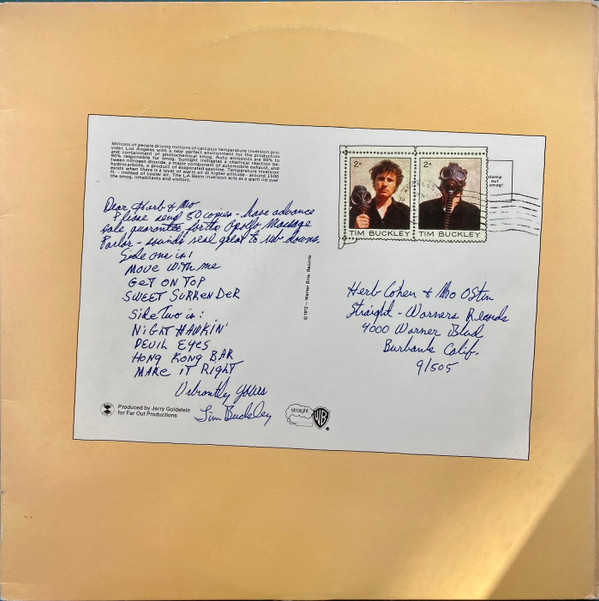 Millions of people driving millions of cars plus temperature inversion pro-
vides Los Angeles with a near perfect environment for the production
and containment of photochemical smog. Auto emissions are 80% to
90% responsible for smog. Sunlight instigates a chemical reaction be-
tween nitrogen dioxide, a major component of automobile exhaust, and
hydrocarbons, a product of evaporated gasoline. Temperature inversion
exists when there is a layer of warm air at higher altitude - around 1500
ft. - instead of cooler air. The LA Basin inversion acts as a giant lid over
the smog, inhabitants and visitors.
Dear Herb & Mo
Please send 50 copies - have advance
sale guarantee for the Apollo Massage
Parlor - sounds real great to rub-downs.
Side one is:
MOVE WITH ME
GET ON TOP
SWEET SURRENDER
Side Two is:
NIGHT HAWKIN'
DEVIL EYES
HONG KONG BAR
MAKE IT RIGHT
Urbanly Yours
Tim Buckley
Produced by Jerry Goldstein
for Far Out Productions
straight
WB
®
©1972 – Warner Bros. Records
2¢
2¢
TIM BUCKLEY
TIM BUCKLEY
stamp
out
smog!
Herb Cohen & Mo Ostin
Straight - Warners Records
4000 Warner Blvd
Burbank Calif.
91505